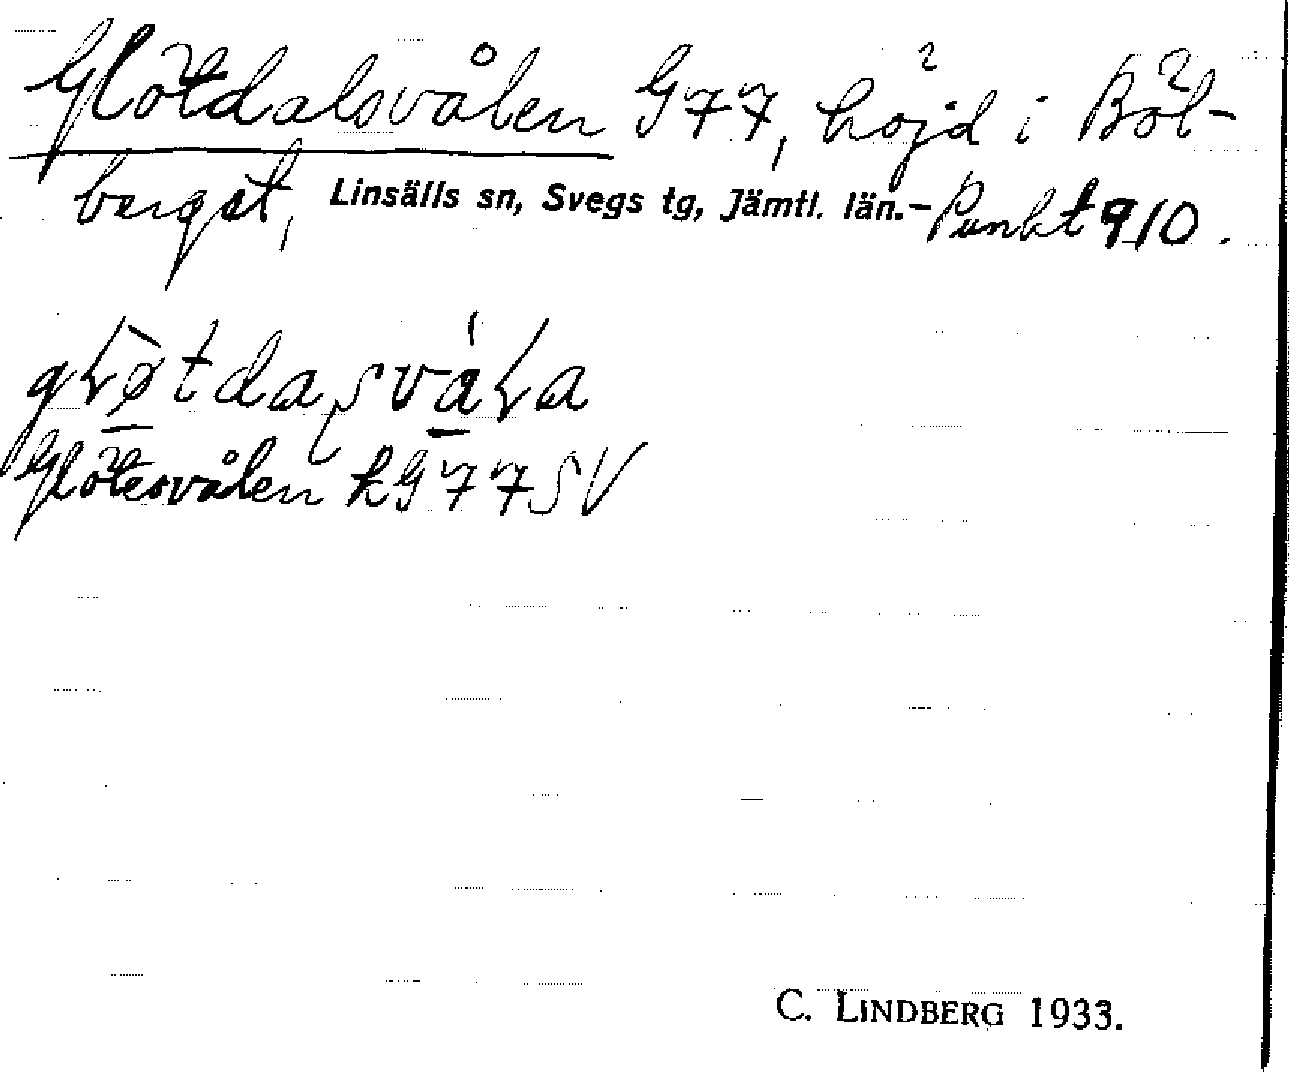 Glötdalsvålen G77, höjd i Böl-
bergst, Linsälls sn, Svegs tg, Jämtl. län. – Punkt 910.
Glötesvålen kG77SV
C. LINDBERG 1933.